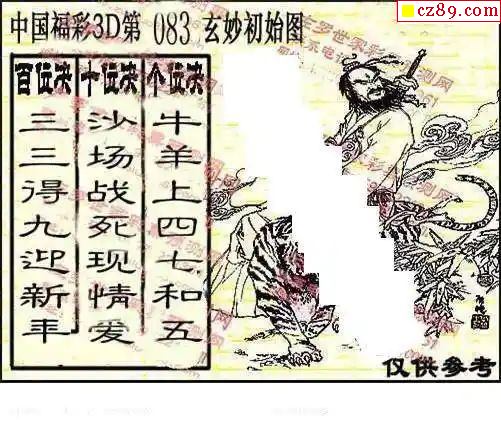 cz89.com
中国福彩3D第 083 玄妙初始图
百位决 十位决 个位决
三三得九迎新年
沙场战死现情爱
牛羊上四七和五
仅供参考